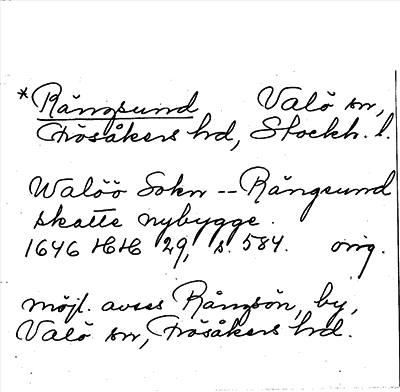 *Rångsund Valö sn,
Frösåkers hd, Stockh. l.
Walöö Sokn -- Rångsund
skatte nybygge.
1646 HH 29, s. 584. orig.
möjl. avses Rångsön, by,
Valö sn, Frösåkers hd.